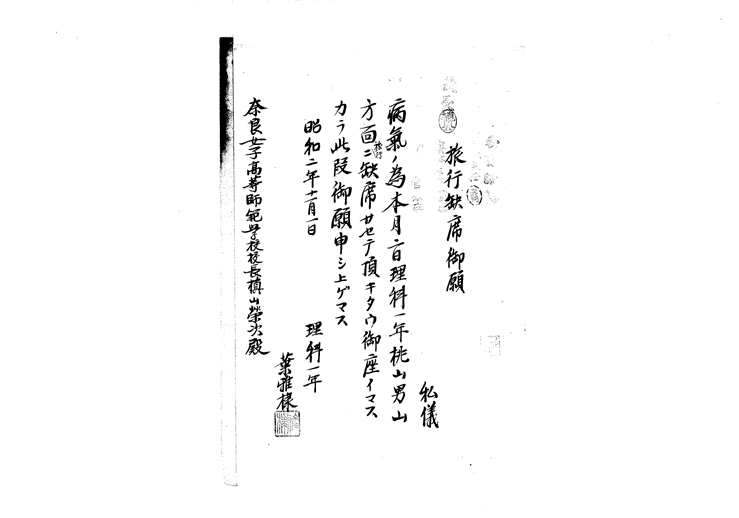 旅行缺席御願
私儀
病氣ノ為本月二日理科一年桃山男山
方面ニ旅行缺席サセテ頂キタウ御座イマス
カラ此段御願申シ上ゲマス
昭和二年十一月一日
理科一年
葉雅棣
奈良女子高等師範学校校長槙山榮次殿